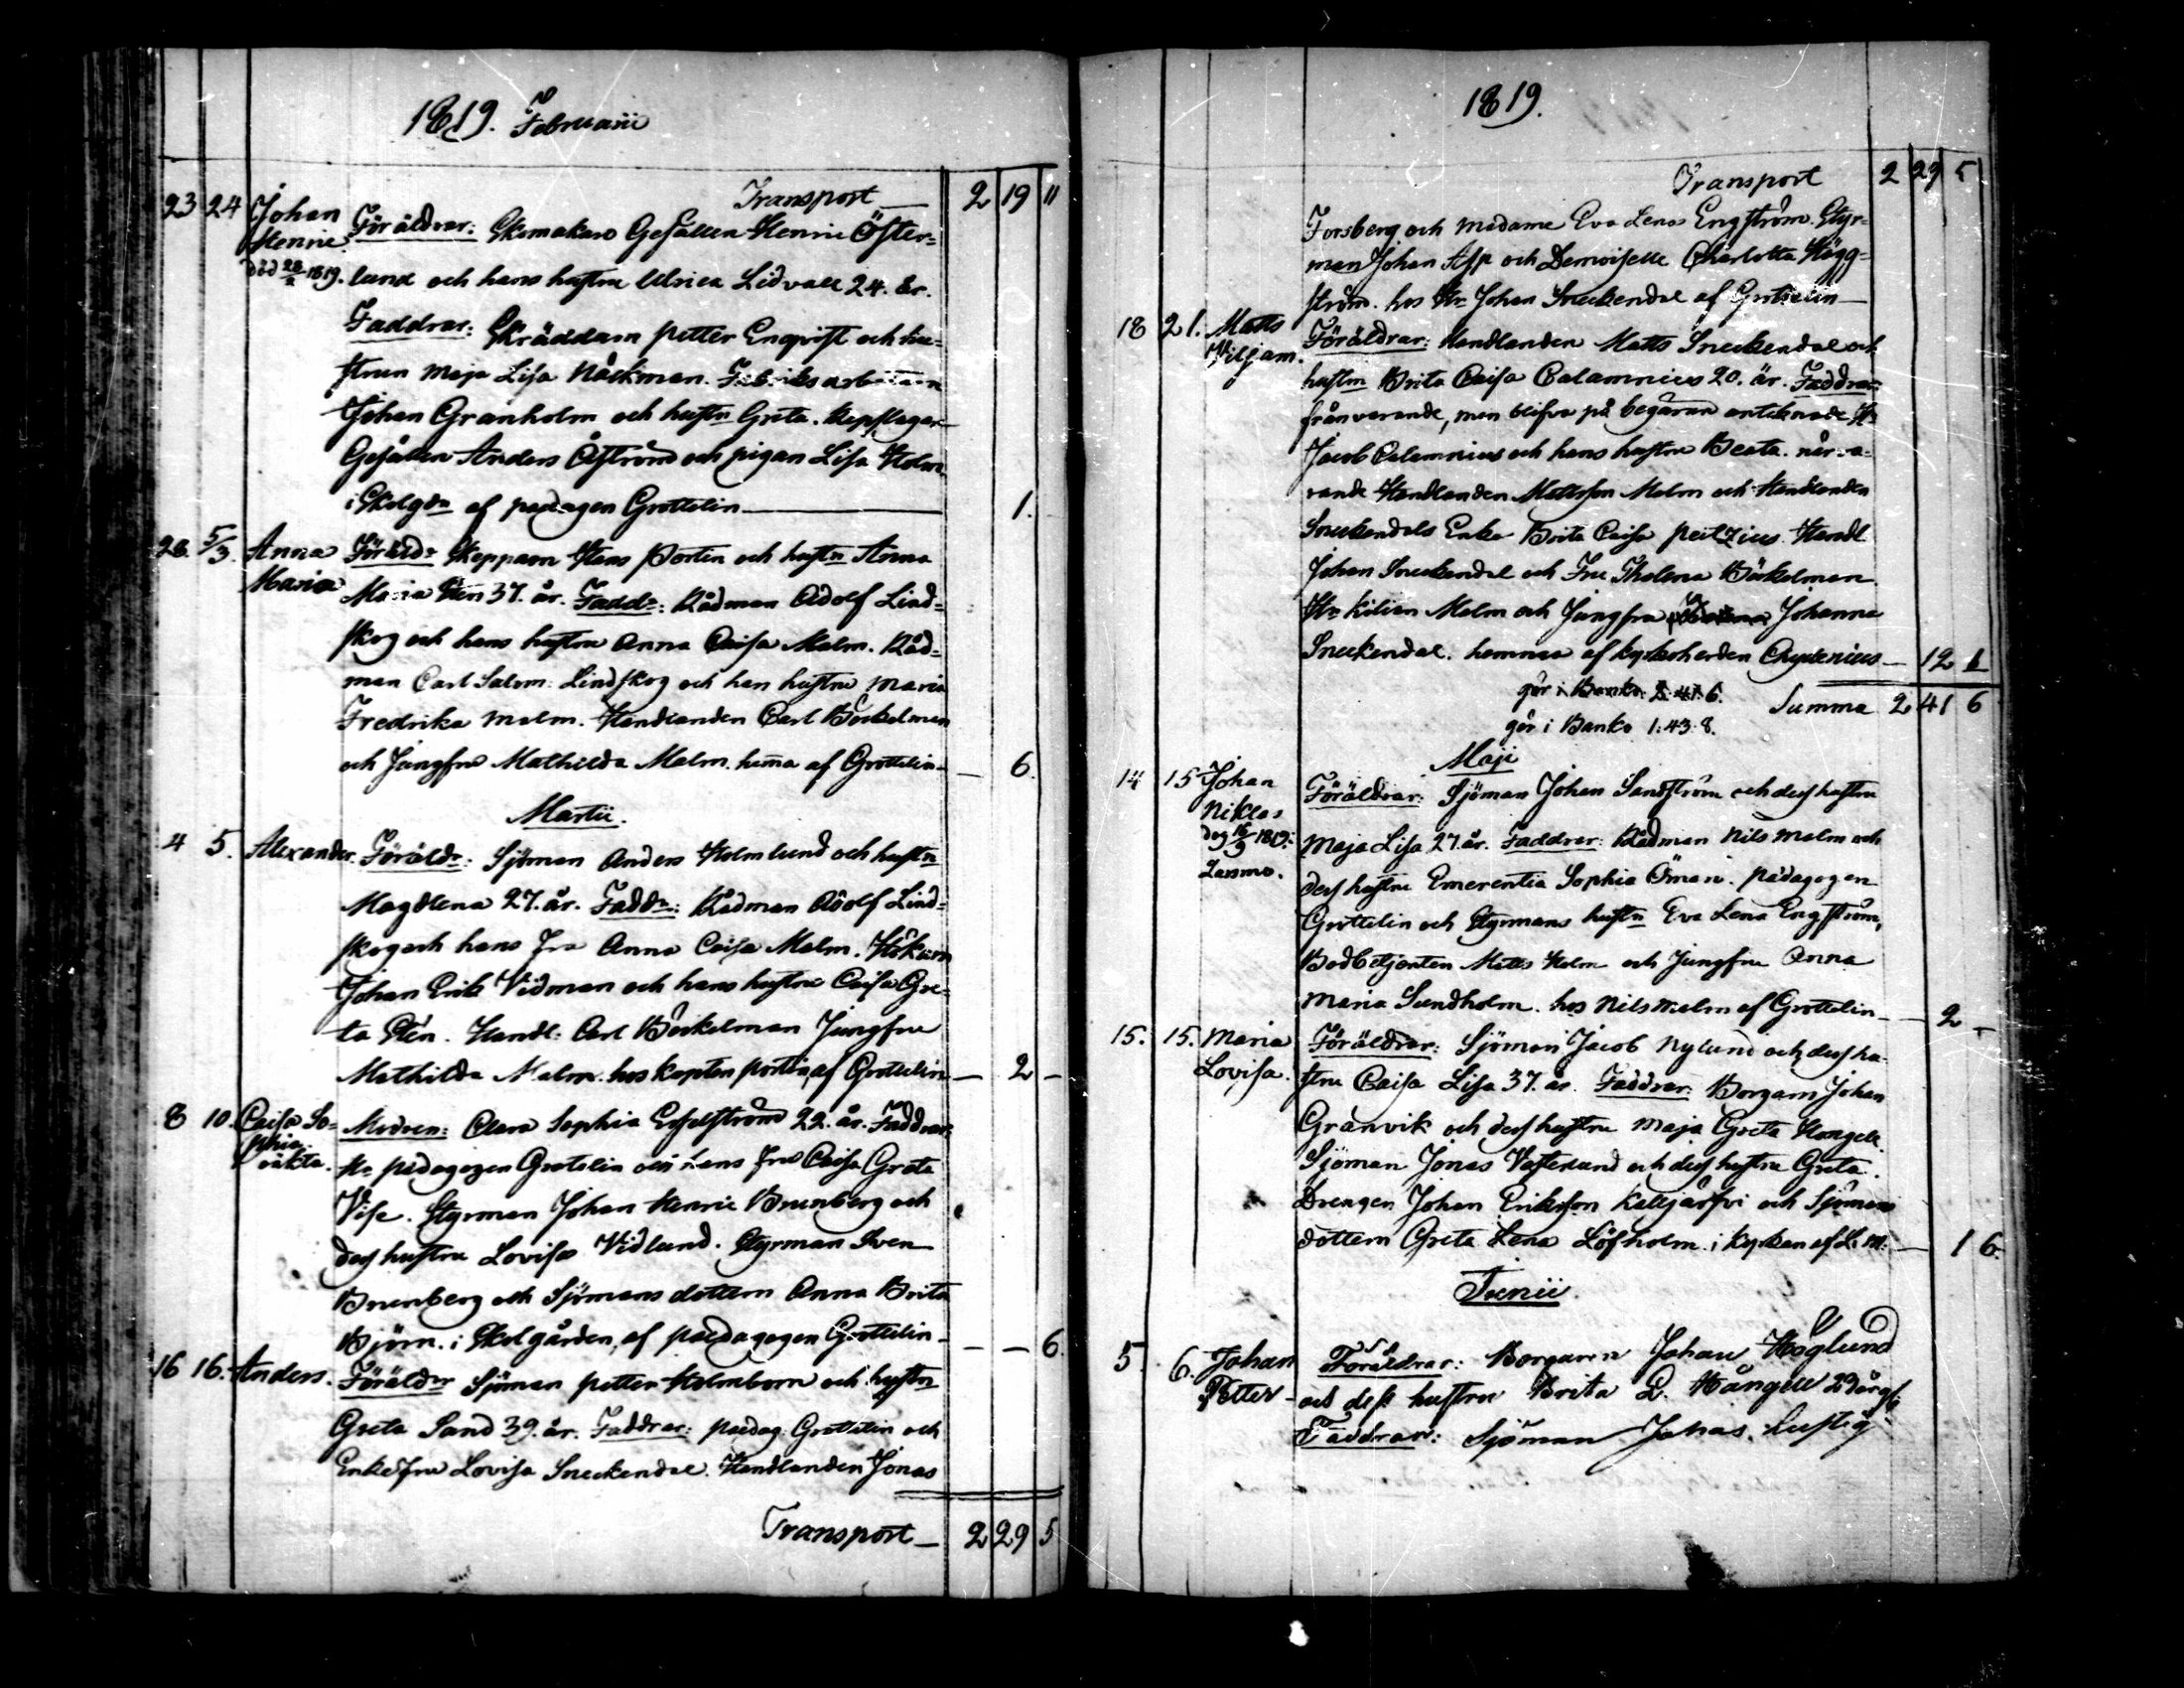 1819. Februarii
Transport — 2 19 11
23 24 Johan Föräldrar: Skomakare Gesällen Henric Öster-
Henric
död 28/2 1819. lund och hans hustru Ulrica Lidvall 24. år.
Faddrar: Skräddarn Petter Enqvist och hu-
strun Maja Lisa Nåckman. Fabriksarbetaren
Johan Granholm och hustn Greta. Repslagar
Gesällen Anders Åström och pigan Lisa Holm
i Skolgdn af pedagogen Grottelin — 1.
26. 5/3. Anna Föräldr Skepparn Hans Portin och hustn Anna
Maria Maria 37. år. Faddr: Rådman Adolf Lind-
skog och hans hustru Anna Caisa Malm. Råd-
man Carl Salom: Lindskog och han hustru Maria
Fredrika Malm. Handlanden Carl Böckelman
och Jungfru Mathilda Malm. hema af Grottelin — 6.
Martii.
4 5. Alexander. Föräldr: Sjöman Anders Holmlund och hustn
Magdlena 27. år. Faddr: Rådman Adolf Lind-
skog och hans fru Anna Caisa Malm.
Johan Erik Vidman och hans hustru Caisa Gre-
ta Stén. Handl: Carl Böckelman Jungfru
Mathilda Malm. hos kapten Portin, af Grottelin — 2 —
8 10. Caisa So- Modren: Clara Sophia 22. år. Faddrar:
phia
oäkta. Hr pedagogen Grotelin och hans fru Caisa Greta
Vise. Styrman Johan Henric Brunberg och
dess hustru Lovisa Vidlund. Styrman Sven
Brunberg och Sjömans dottern Anna Brita
Björn. i Skolgården, af paedagogen Grottelin — — 6.
16 16. Anders. Föräldrr Sjöman Petter Holmborn och hustn
Greta Sand 39. år. Faddrar: paedag: Grottelin och
Enkefru Lovisa Sneckendal. Handlanden Jonas
Transport — 2 29 5
1819.
Transport 2 29 5
Forsberg och Madame Eva Lena Engström. Styr-
man Johan Asp och Demoiselle Charlotta Hägg-
ström. hos Hr Johan Sneckendal af Grotelin —
18 21. Matts Föräldrar: Handlanden Matts Sneckendal och
Viljam. hustru Brita Caisa Calamnius 20. år. Faddrar:
frånvarande, men blifva på begäran anteknade Hr
Jacob Calamnius och hans hustru Beata. närva-
rande Handlanden Matts Malm och Handlanden
Sneckendals Enka Brita Caisa Peitzius. Handl
Johan Sneckendal och Fru Thalena Böckelman.
Hr Kilian Malm och Jungfru Johanna
Sneckendal. hemma af kyrkoherden Chydenius — 12 1
gör i Banko 2. 41. 6. Summa 2 41 6
gör i Banko 1:43:8.
Maji
14 15 Johan Föräldrar: Sjöman Johan Sandström och dess hustru
Niklas
dog 16/9 1819. Maja Lisa 27. år. Faddrar: Rådman Nils Malm och
Larsmo. dess hustru Emerentia Sophia Öman. Pädagogen
Grottelin och Styrmans hustn Eva Lena Engström,
Bodbetjenten Matts Holm och Jungfru Anna
Maria Sundholm. hos Nils Malm af Grottelin — 2 —
15. 15. Maria Föräldrar: Sjöman Jacob Nylund och dess hu-
Lovisa. stru Caisa Lisa 37. år. Faddrar: Borgarn Johan
Granvik och dess hustru Maja Greta Hongell
Sjöman Jonas Vesterlund och dess hustru Greta.
Drengen Johan Eriksson Kalljärfvi och Sjömans
dottern Greta Lena Löfholm. i kyrkan af L. M. — 1 6.
Junii
5. 6. Johan Föräldrar: Borgaren Johan Höglund
Petter — och dess hustru Brita L. Hångell 29 årgl
Faddrar: Sjöman Johas. Lustig